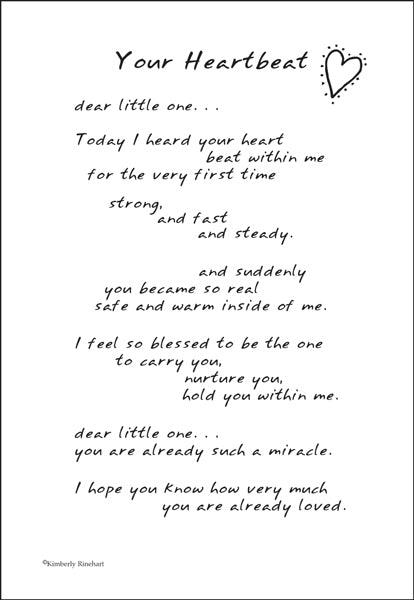 Your Heartbeat
dear little one. . .
Today I heard your heart
beat within me
for the very first time
strong,
and fast
and steady.
and suddenly
you became so real
safe and warm inside of me.
I feel so blessed to be the one
to carry you,
nurture you,
hold you within me.
dear little one. . .
you are already such a miracle.
I hope you know how very much
you are already loved.
©Kimberly Rinehart